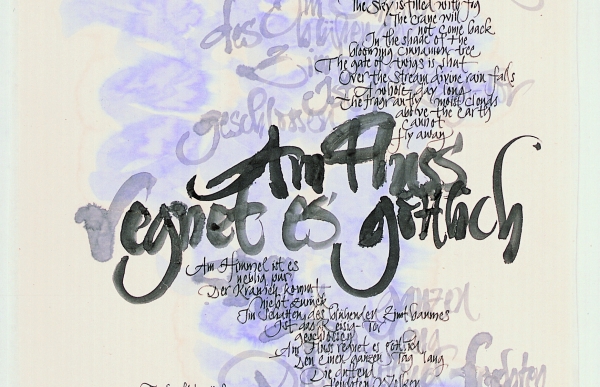 The Sky is filled with fog
The crane will
not come back
In the shade of the
blooming cinnamon tree
The gate of twigs is shut
Over the stream divine rain falls
A whole day long
The fragrantly moist clouds
above the earth
cannot
fly away
des blühenden
geschlossen
Am Fluss
regnet es göttlich
Am Himmel ist es
neblig nur
Der Kranich kommt
nicht zurück
Im Schatten des blühenden Zimtbaumes
Ist das Reisig-Tor
geschlossen
Am Fluss regnet es göttlich
Den einen ganzen Tag lang
Die duftend
feuchten Wolken
ganzen
feuchten